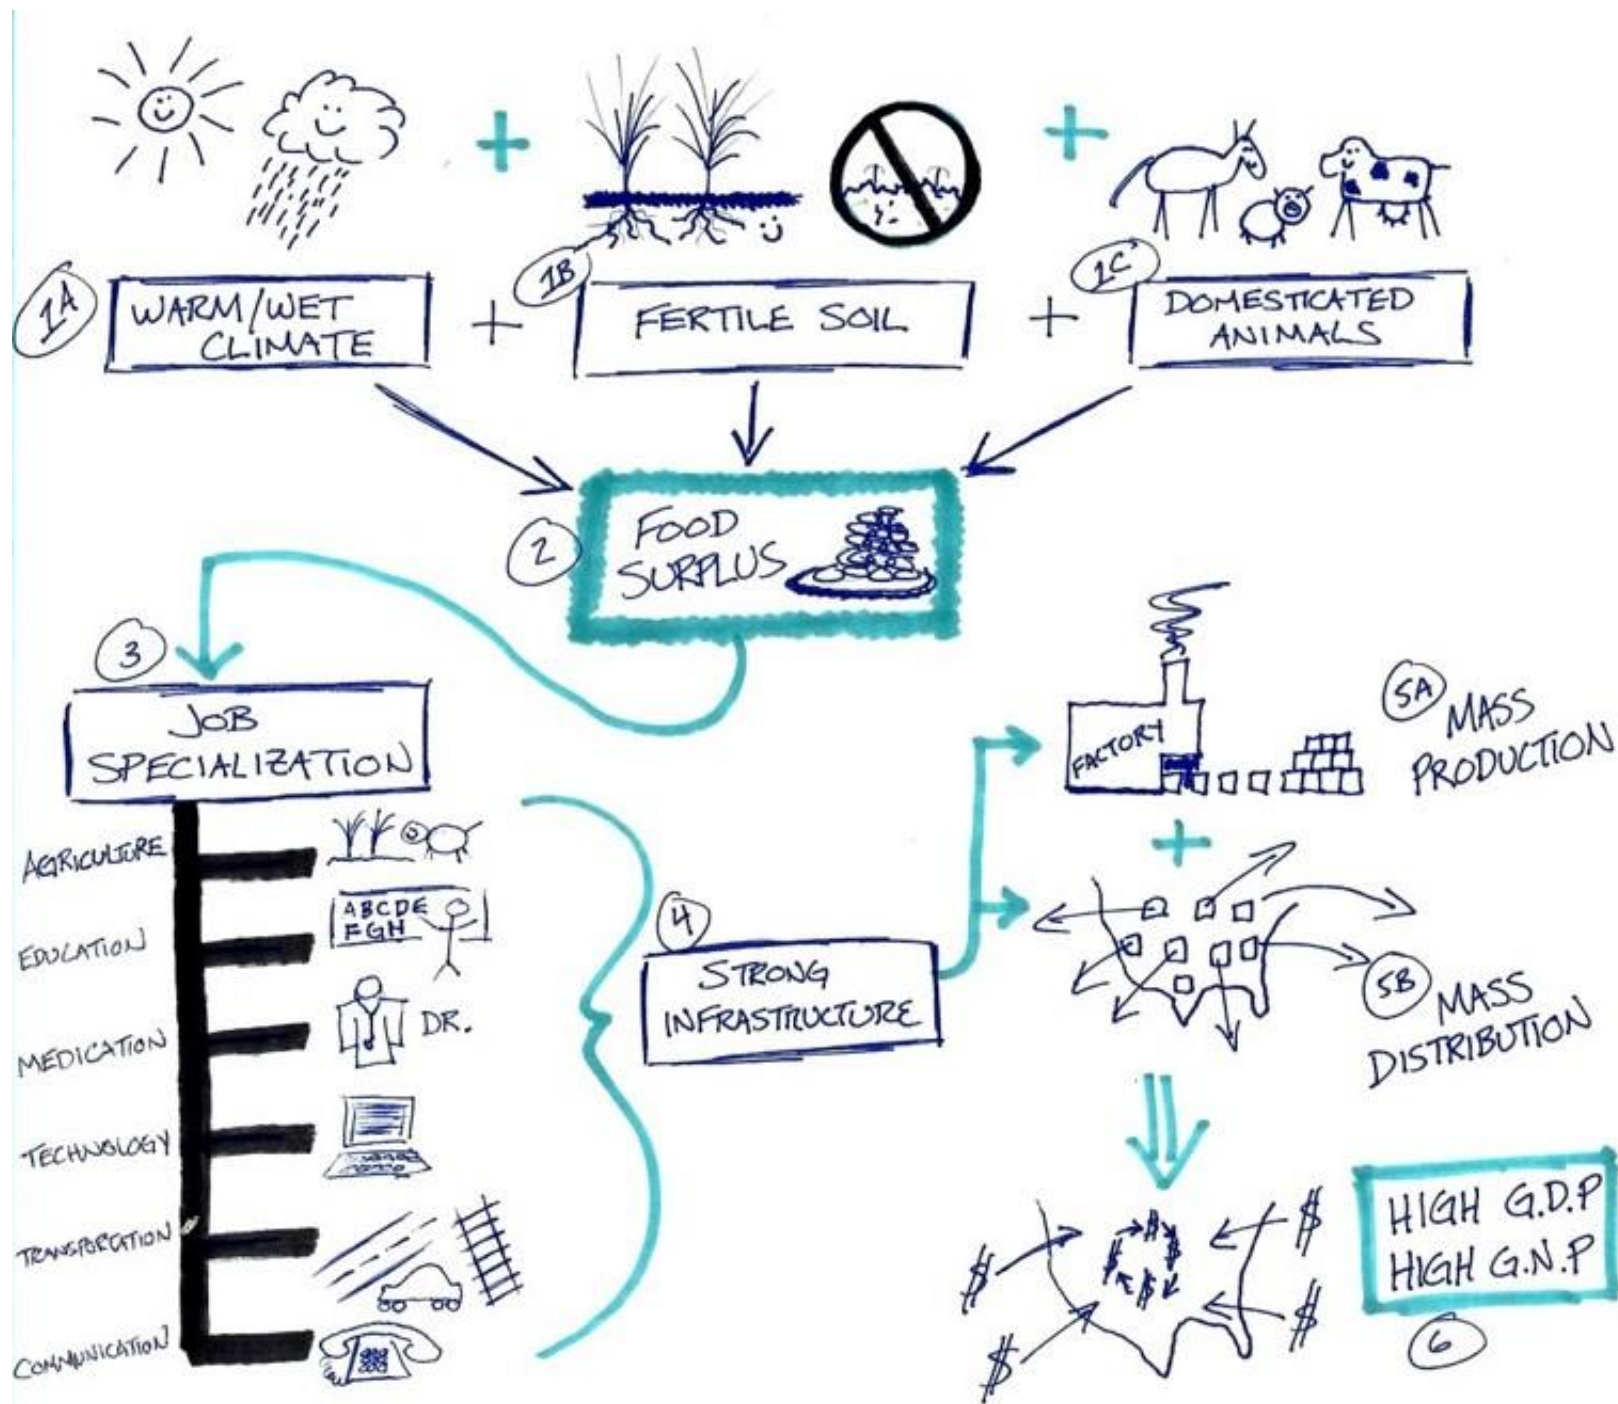 1A
WARM/WET
CLIMATE
+
1B
FERTILE SOIL
+
1C
DOMESTICATED
ANIMALS
2
FOOD
SURPLUS
3
JOB
SPECIALIZATION
AGRICULTURE
EDUCATION
ABCDE
FGH
MEDICATION
DR.
TECHNOLOGY
TRANSPORTATION
COMMUNICATION
4
STRONG
INFRASTRUCTURE
FACTORY
5A
MASS
PRODUCTION
+
5B
MASS
DISTRIBUTION
$ $ $ $
$ $ $ $
HIGH G.D.P
HIGH G.N.P
6